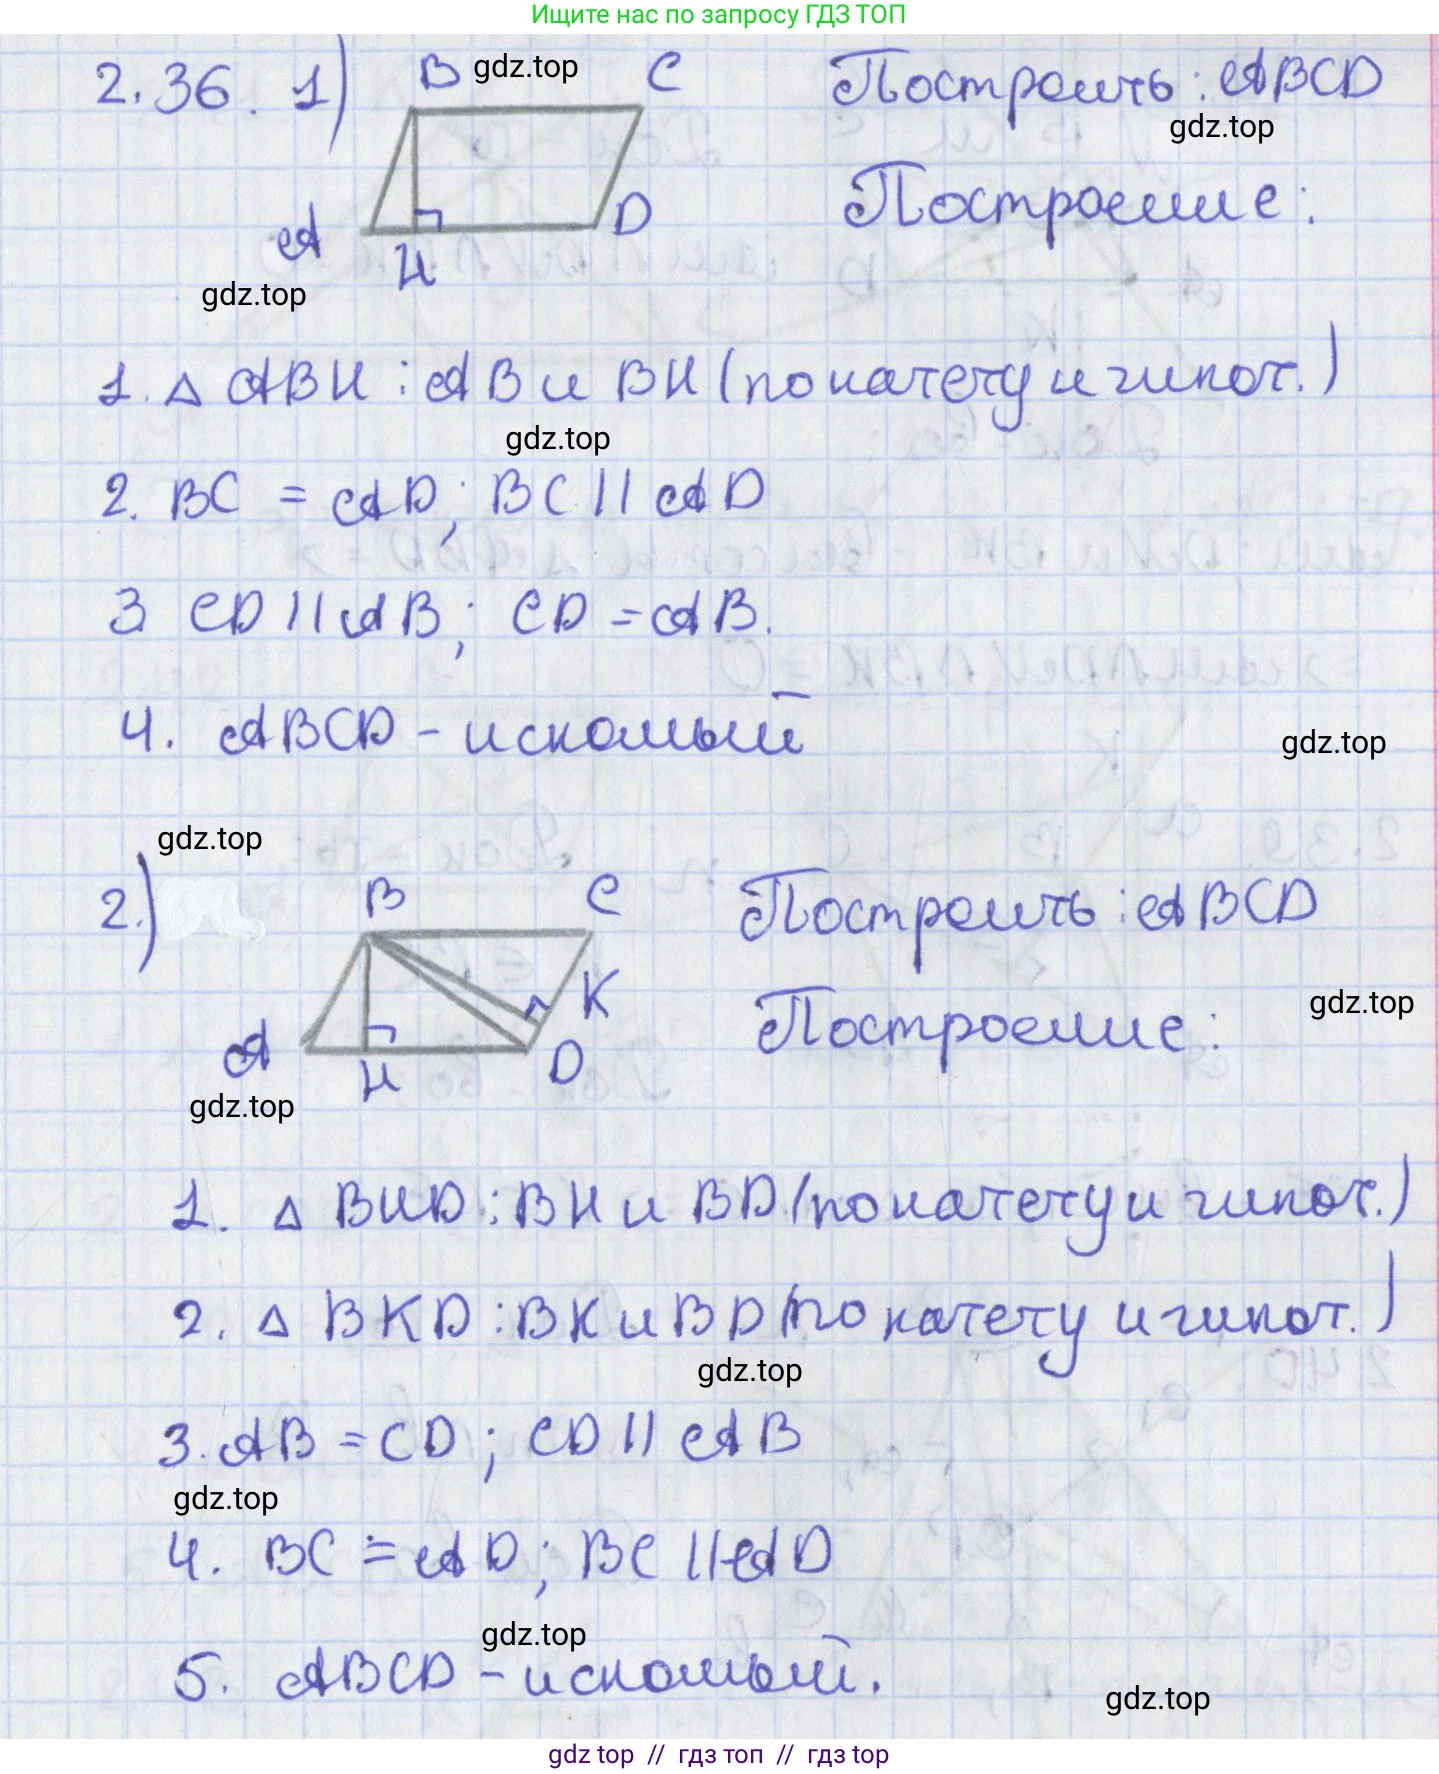 Ищите нас по запросу ГДЗ ТОП
2.36. 1) B gdz.top C Построить: ABCD
gdz.top
A H D Построение:
gdz.top
1. △ ABH : AB и BH (по катету и гипот.)
gdz.top
2. BC = AD; BC || AD
3 CD || AB; CD = AB.
4. ABCD - искомый
gdz.top
gdz.top
2.) B C Построить: ABCD
K
gdz.top
A H D Построение:
gdz.top
1. △ BHD : BH и BD (по катету и гипот.)
2. △ BKD : BK и BD (по катету и гипот.)
gdz.top
3. AB = CD; CD || AB
gdz.top
4. BC = AD; BC || AD
gdz.top
5. ABCD - искомый.
gdz.top
gdz top // гдз топ // гдз top